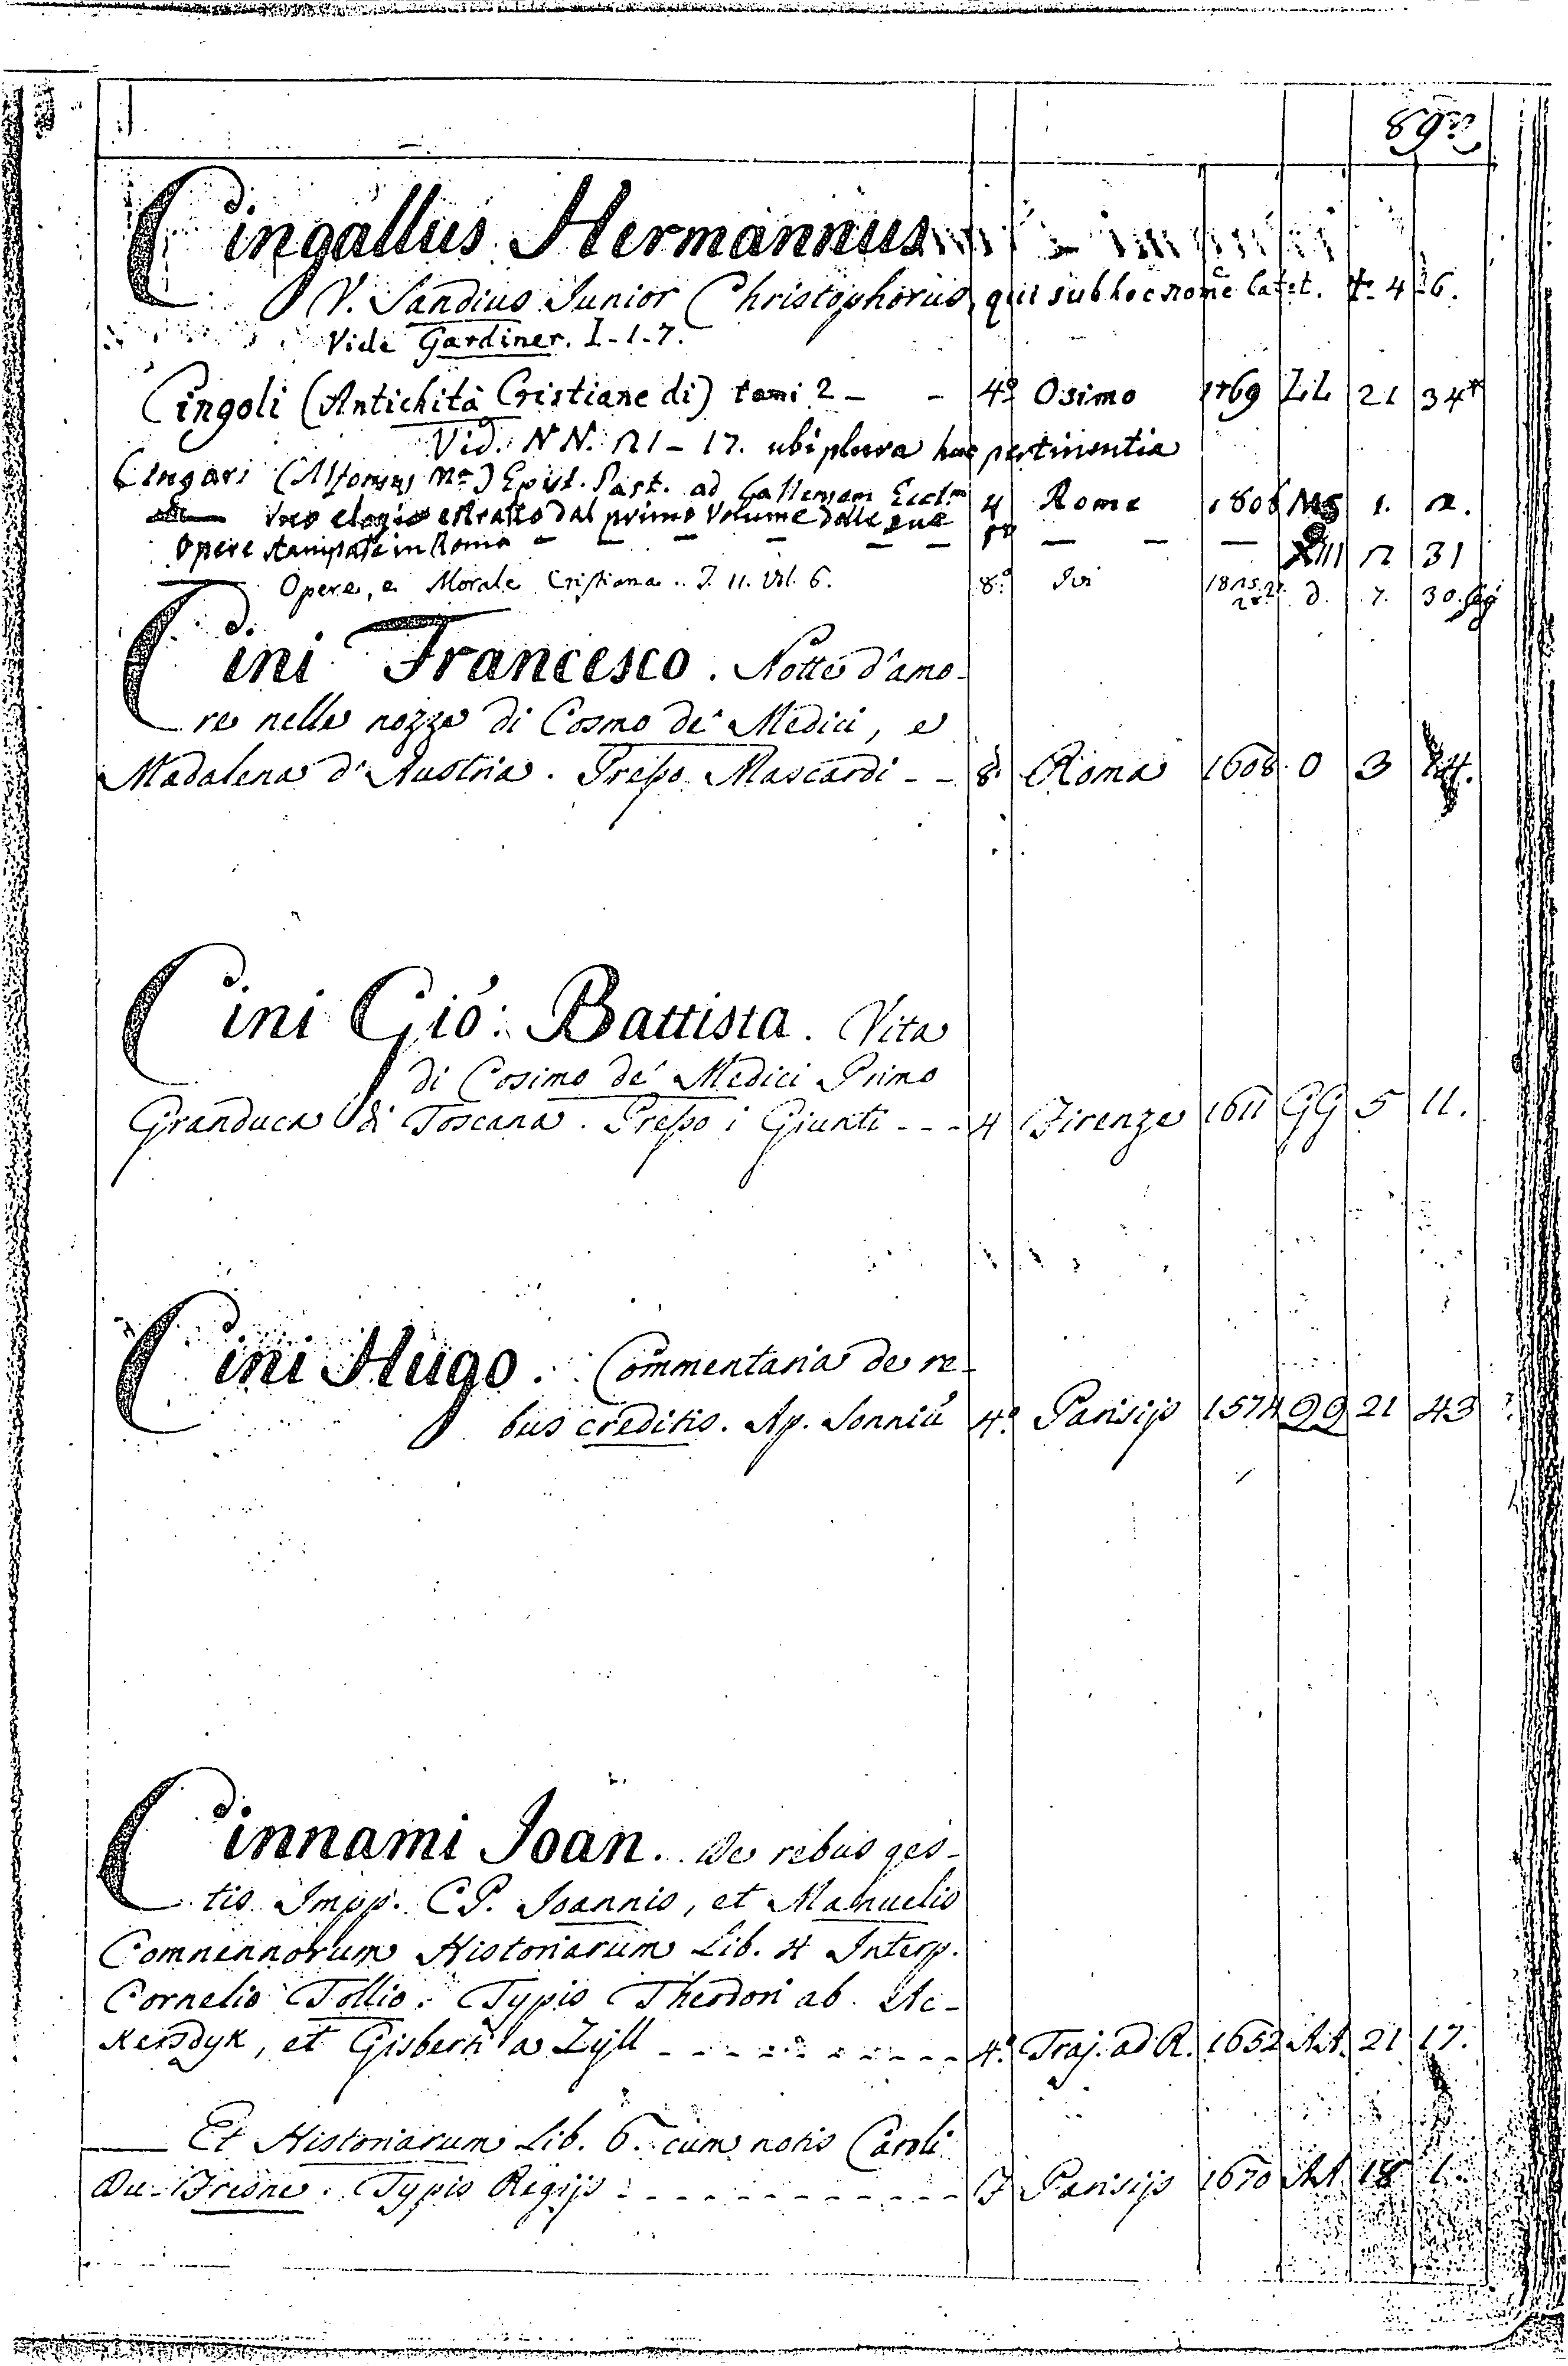 Cingallus Hermannus
V. Sandius Junior Christophorus, qui sub hoc nome latet. 4 6.
Vide Gardiner. I-1-7.
Cingoli (Antichità Cristiane di) tomi 2 - - 4º Osimo 1769 LL 21 34*
Vid. NN. 21-17. ubi plura huc pertinentia
Cingari (Alfonsus Mª) Epist. Past. ad Callensem Eccl. 4 Rome 1808 1. 2.
Suo elogio estratto dal primo Volume delle sue
Opere stampate in Roma - - - - - - - - XIII 2 31
Opere, e Morale Cristiana. T. 11. Vol. 6. 8º Ivi d. 7. 30.
Cini Francesco. Notte d'amo-
re nelle nozze di Cosmo de' Medici, e
Madalena d'Austria. Presso Mascardi - - 8. Roma 1608 O 3
Cini Gio: Battista. Vita
di Cosimo de' Medici Primo
Granduca di Toscana. Presso i Giunti - - - 4 Firenze 1611 GG 5 11.
Cini Hugo. Commentaria de re-
bus creditis. Ap. Sonniū 4º Parisijs 1574 QQ 21 43
Cinnami Joan. De rebus ges-
tis Impp. CP. Joannis, et Manuelis
Comnennorum Historiarum Lib. 4 Interp.
Cornelio Tollio. Typis Theodori ab Ac-
kersdyk, et Gisberti a Zyll - - - - - - - - - - 4º Traj. ad R. 1652 AA. 21 17.
— Et Historiarum Lib. 6. cum notis Caroli
Du-Fresne. Typis Regijs - - - - - - - - - - - - f Parisijs 1670 AA 18 1.